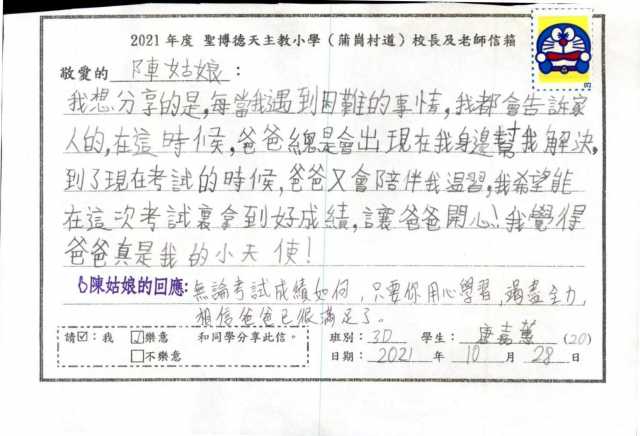 2021 年度 聖博德天主教小學（蒲崗村道）校長及老師信箱
敬愛的 陳姑娘：
我想分享的是，每當我遇到困難的事情，我都會告訴家
人的，在這時候，爸爸總是會出現在我身邊幫我解決，
到了現在考試的時候，爸爸又會陪伴我溫習，我希望能
在這次考試裏拿到好成績，讓爸爸開心！我覺得
爸爸真是我的小天使！
陳姑娘的回應：無論考試成績如何，只要你用心學習，竭盡全力，
相信爸爸已很滿足了。
請☑：我 ☑樂意 和同學分享此信。 班別：3D 學生：唐嘉蕙 (20)
□不樂意 日期：2021 年 10 月 28 日